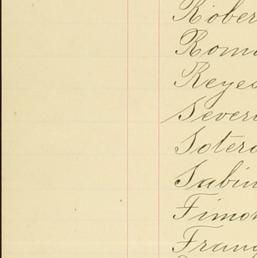 Rober
Roma
Reyes
Severi
Sotero
Sabin
Timo
Franc